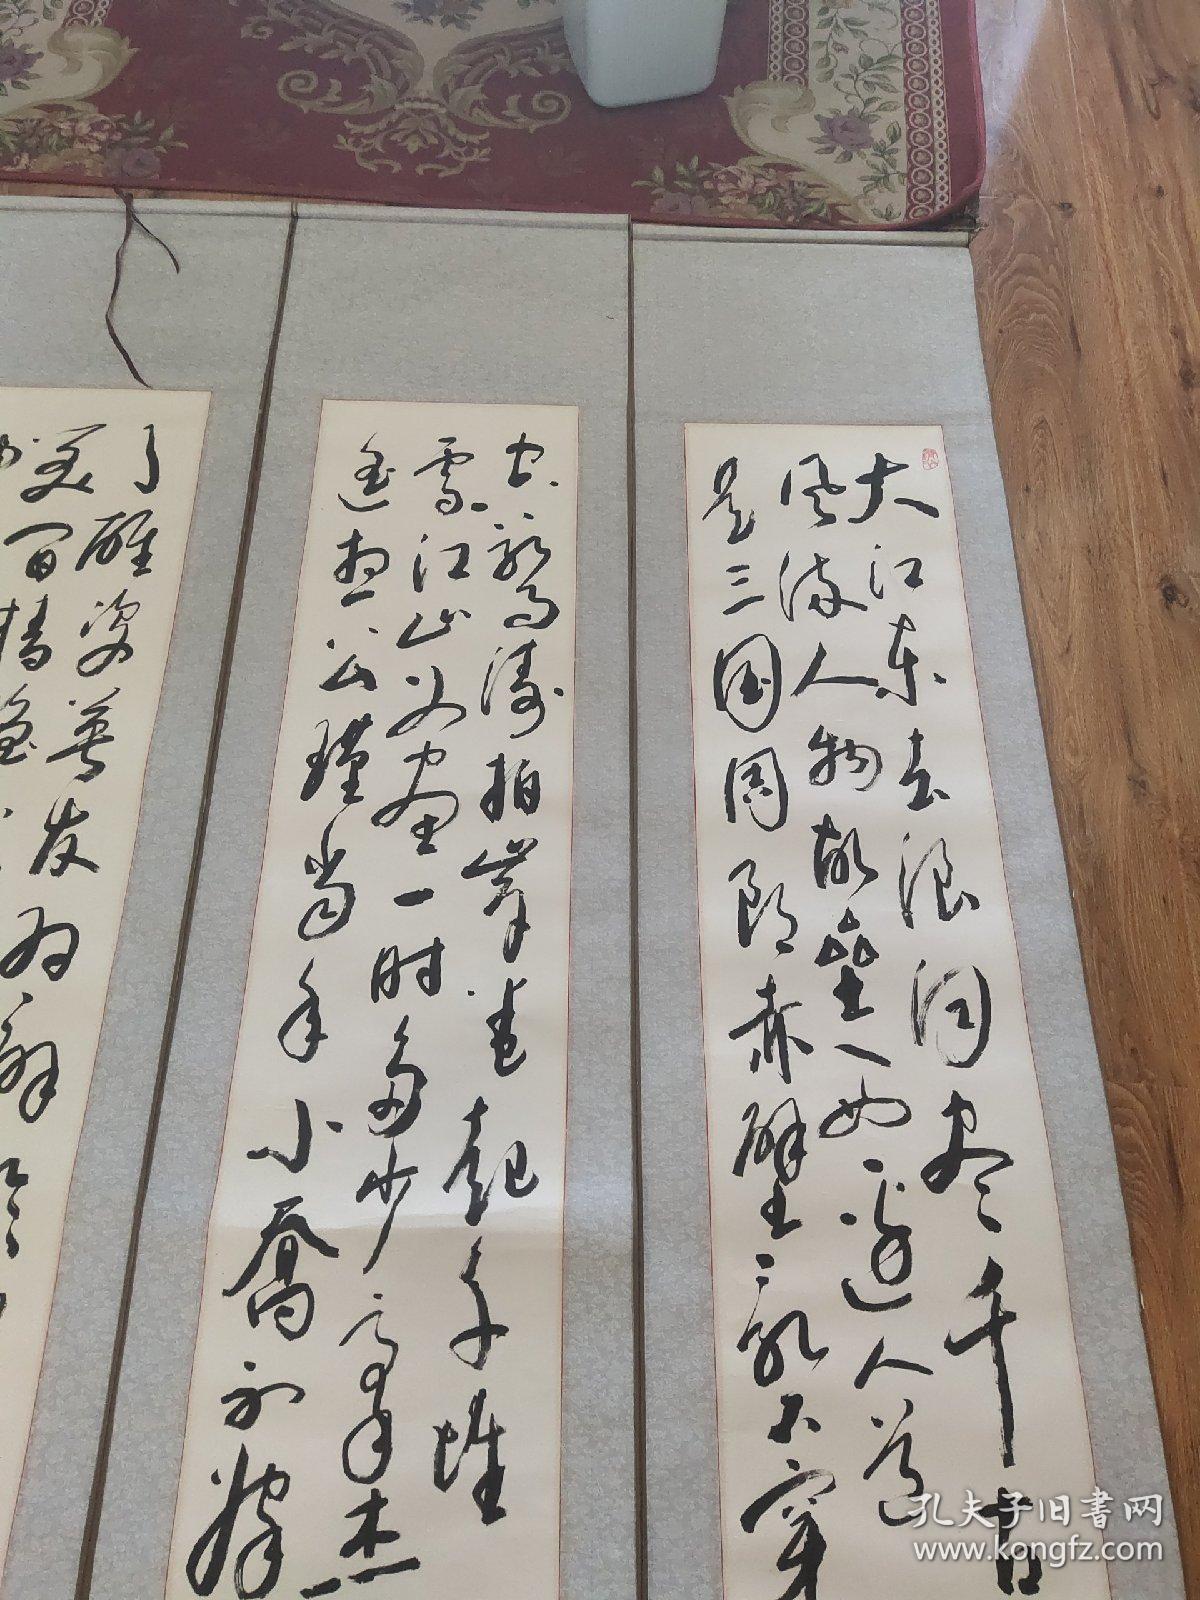 大江东去浪淘尽千古
风流人物故垒西边人道
是三国周郎赤壁乱石穿
空惊涛拍岸卷起千堆
雪江山如画一时多少豪杰
遥想公瑾当年小喬初嫁
了雄姿英发羽扇
笑间樯橹
孔夫子旧书网
www.kongfz.com